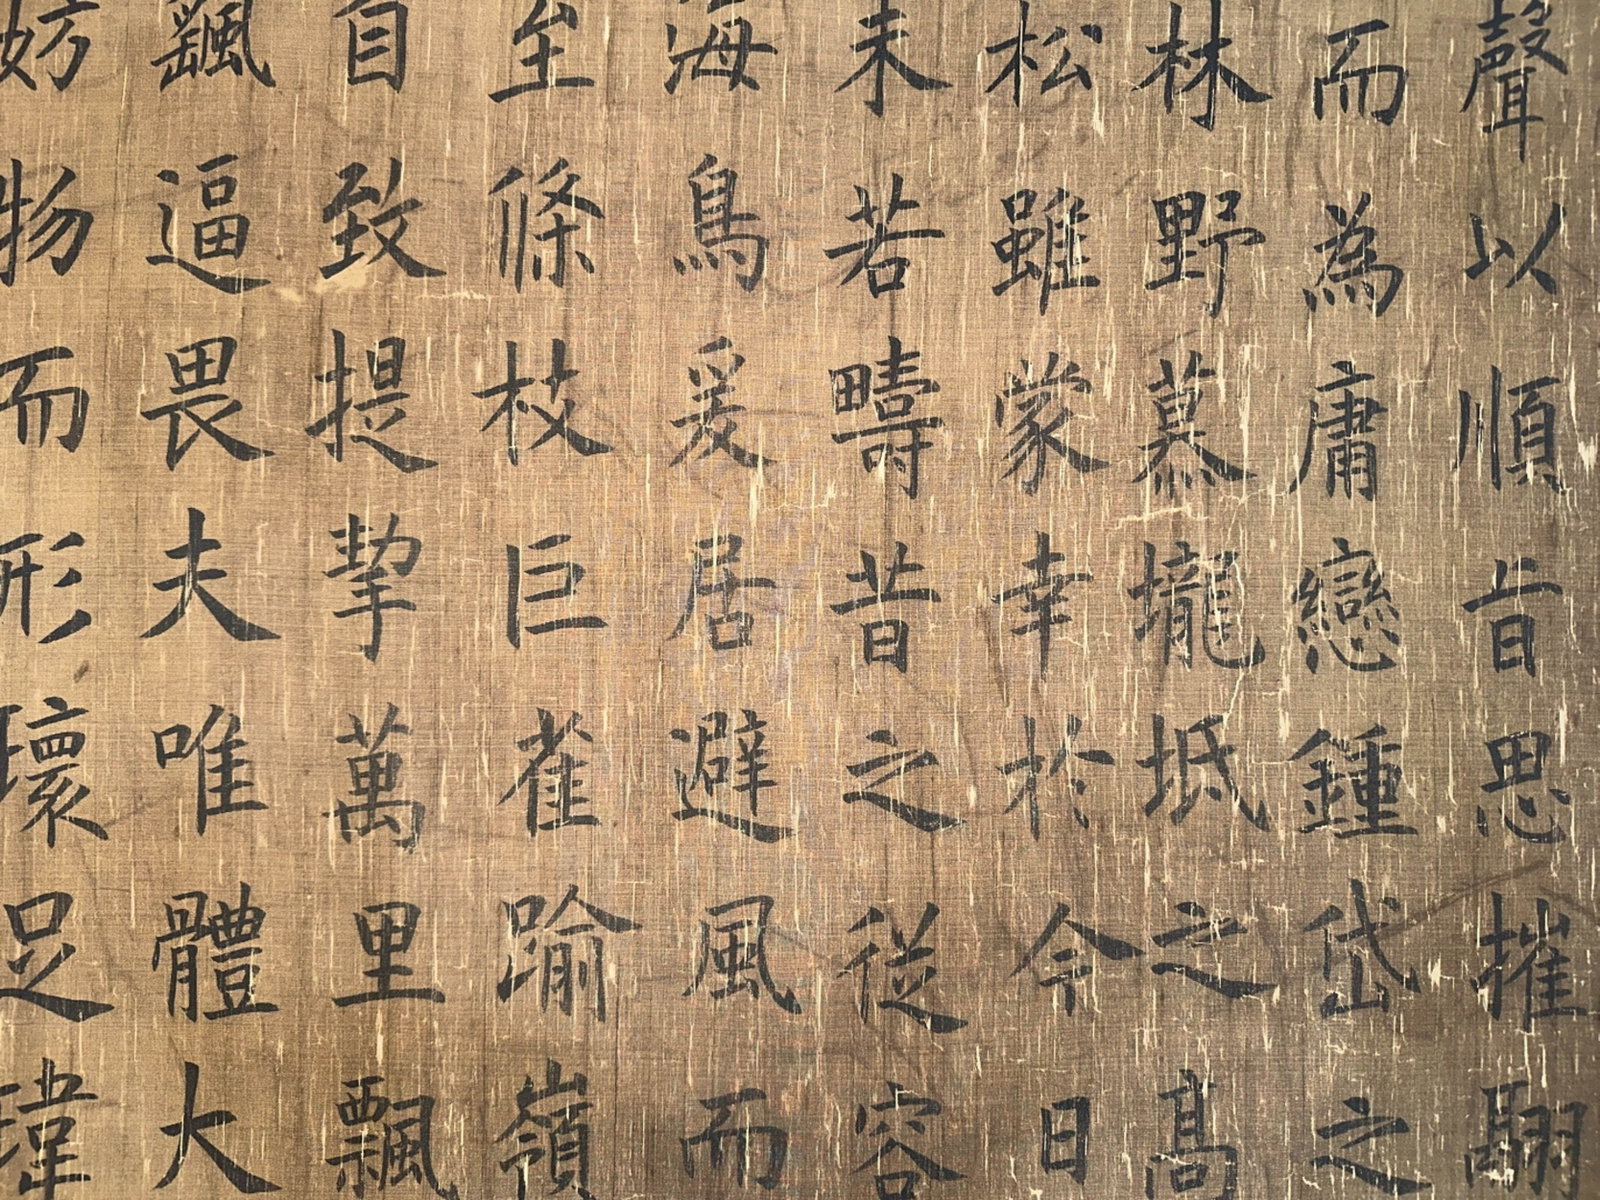 聲以順旨思摧翮
而為庸戀鍾岱之
林野慕壠坻之高
松雖蒙幸於今日
未若疇昔之從容
海鳥爰居避風而
至條枝巨雀踰嶺
自致提挈萬里飄
颻逼畏夫唯體大
妨物而形瓌足瑋